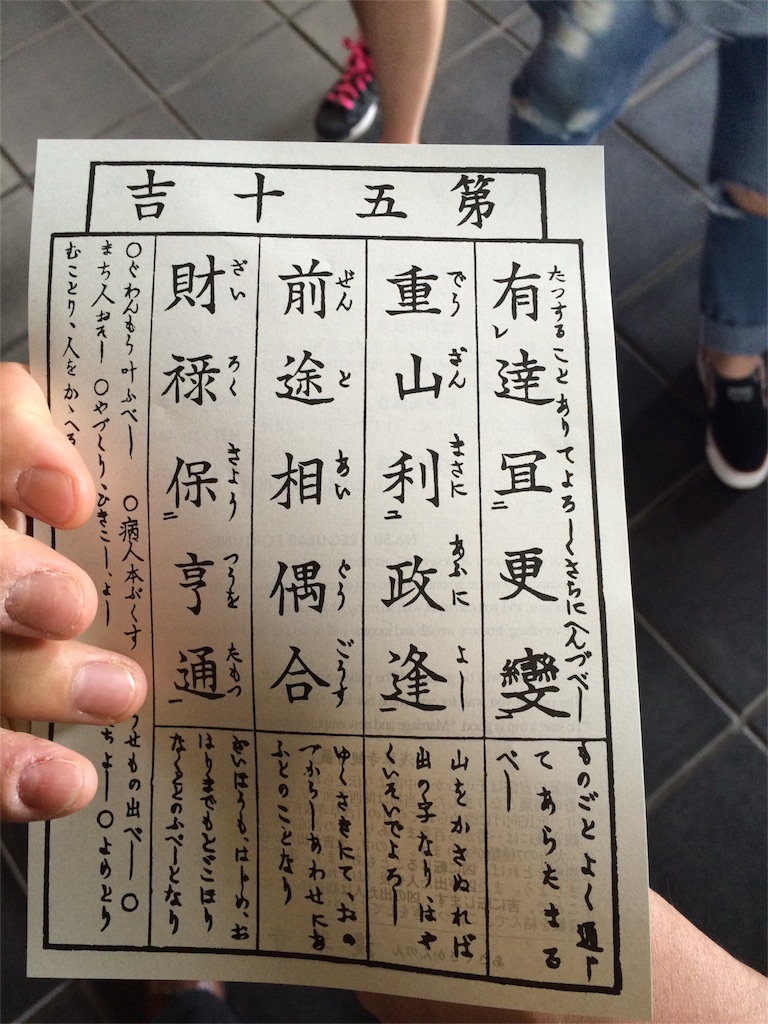 第五十吉
たつすることありてよろしくさらにへんづべし
有達冝更變
レ 二 一
ものごとよく通り
てあらたまる
べし
でうざんまさにあふによし
重山利政逢
二 一
山をかさぬれば
出の字なり、はや
くいそいでよろし
ぜんとあいぐうごうす
前途相偶合
ゆくさきにて、おの
づからしあわせにあ
ふとのことなり
ざいろくきようつうをたもつ
財禄保亨通
二 一
はじめ、お
はりまでもとどこほり
なく
のぶべしとなり
〇ぐわんもう叶ふべし 〇病人本ぶくす
うせもの出べし 〇
まち人おそし 〇やづくり、ひきこし、よし
ちよし 〇よめとり
むことり、人をかゝへる